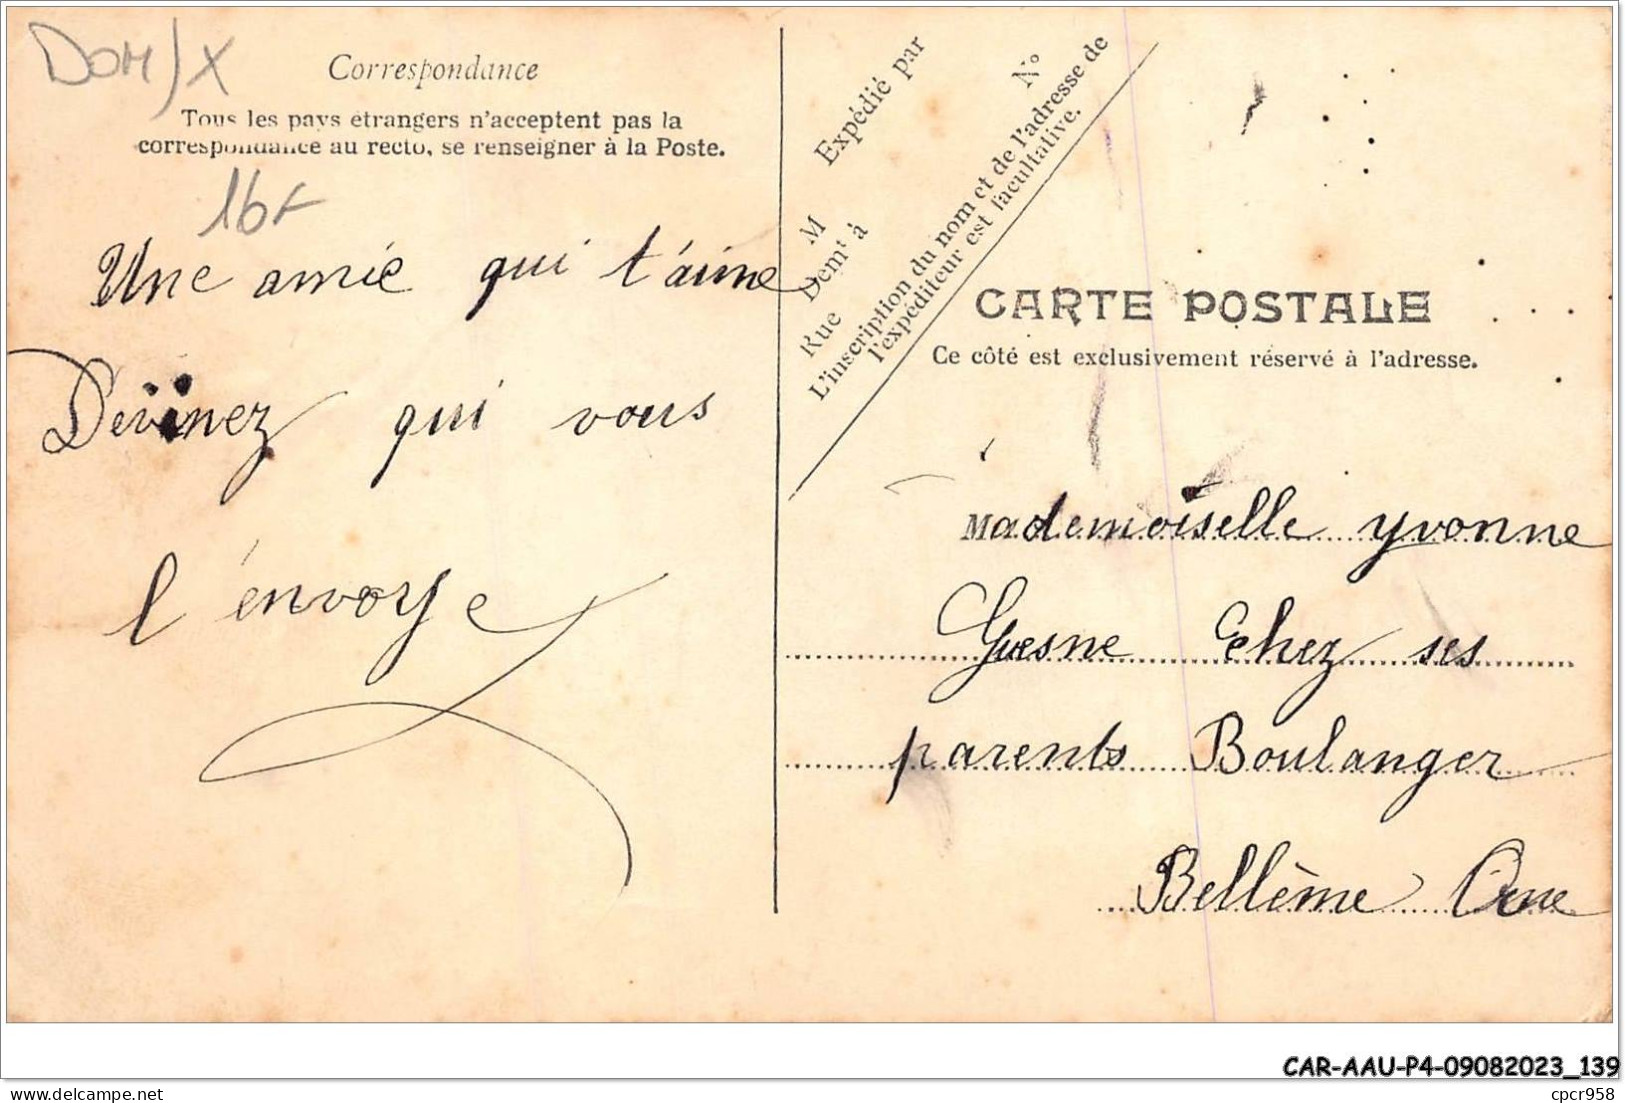 DOM/X
Correspondance
Tous les pays étrangers n'acceptent pas la
correspondance au recto, se renseigner à la Poste.
16F
Une amie qui t'aime
Devinez qui vous
l'envoye
Expédié par
M
Demt à
Rue
N°
L'inscription du nom et de l'adresse de
l'expéditeur est facultative.
CARTE POSTALE
Ce côté est exclusivement réservé à l'adresse.
Mademoiselle Yvonne
Guesne Chez ses
parents Boulanger
Bellême Orne
CAR-AAU-P4-09082023_139
cpcr958